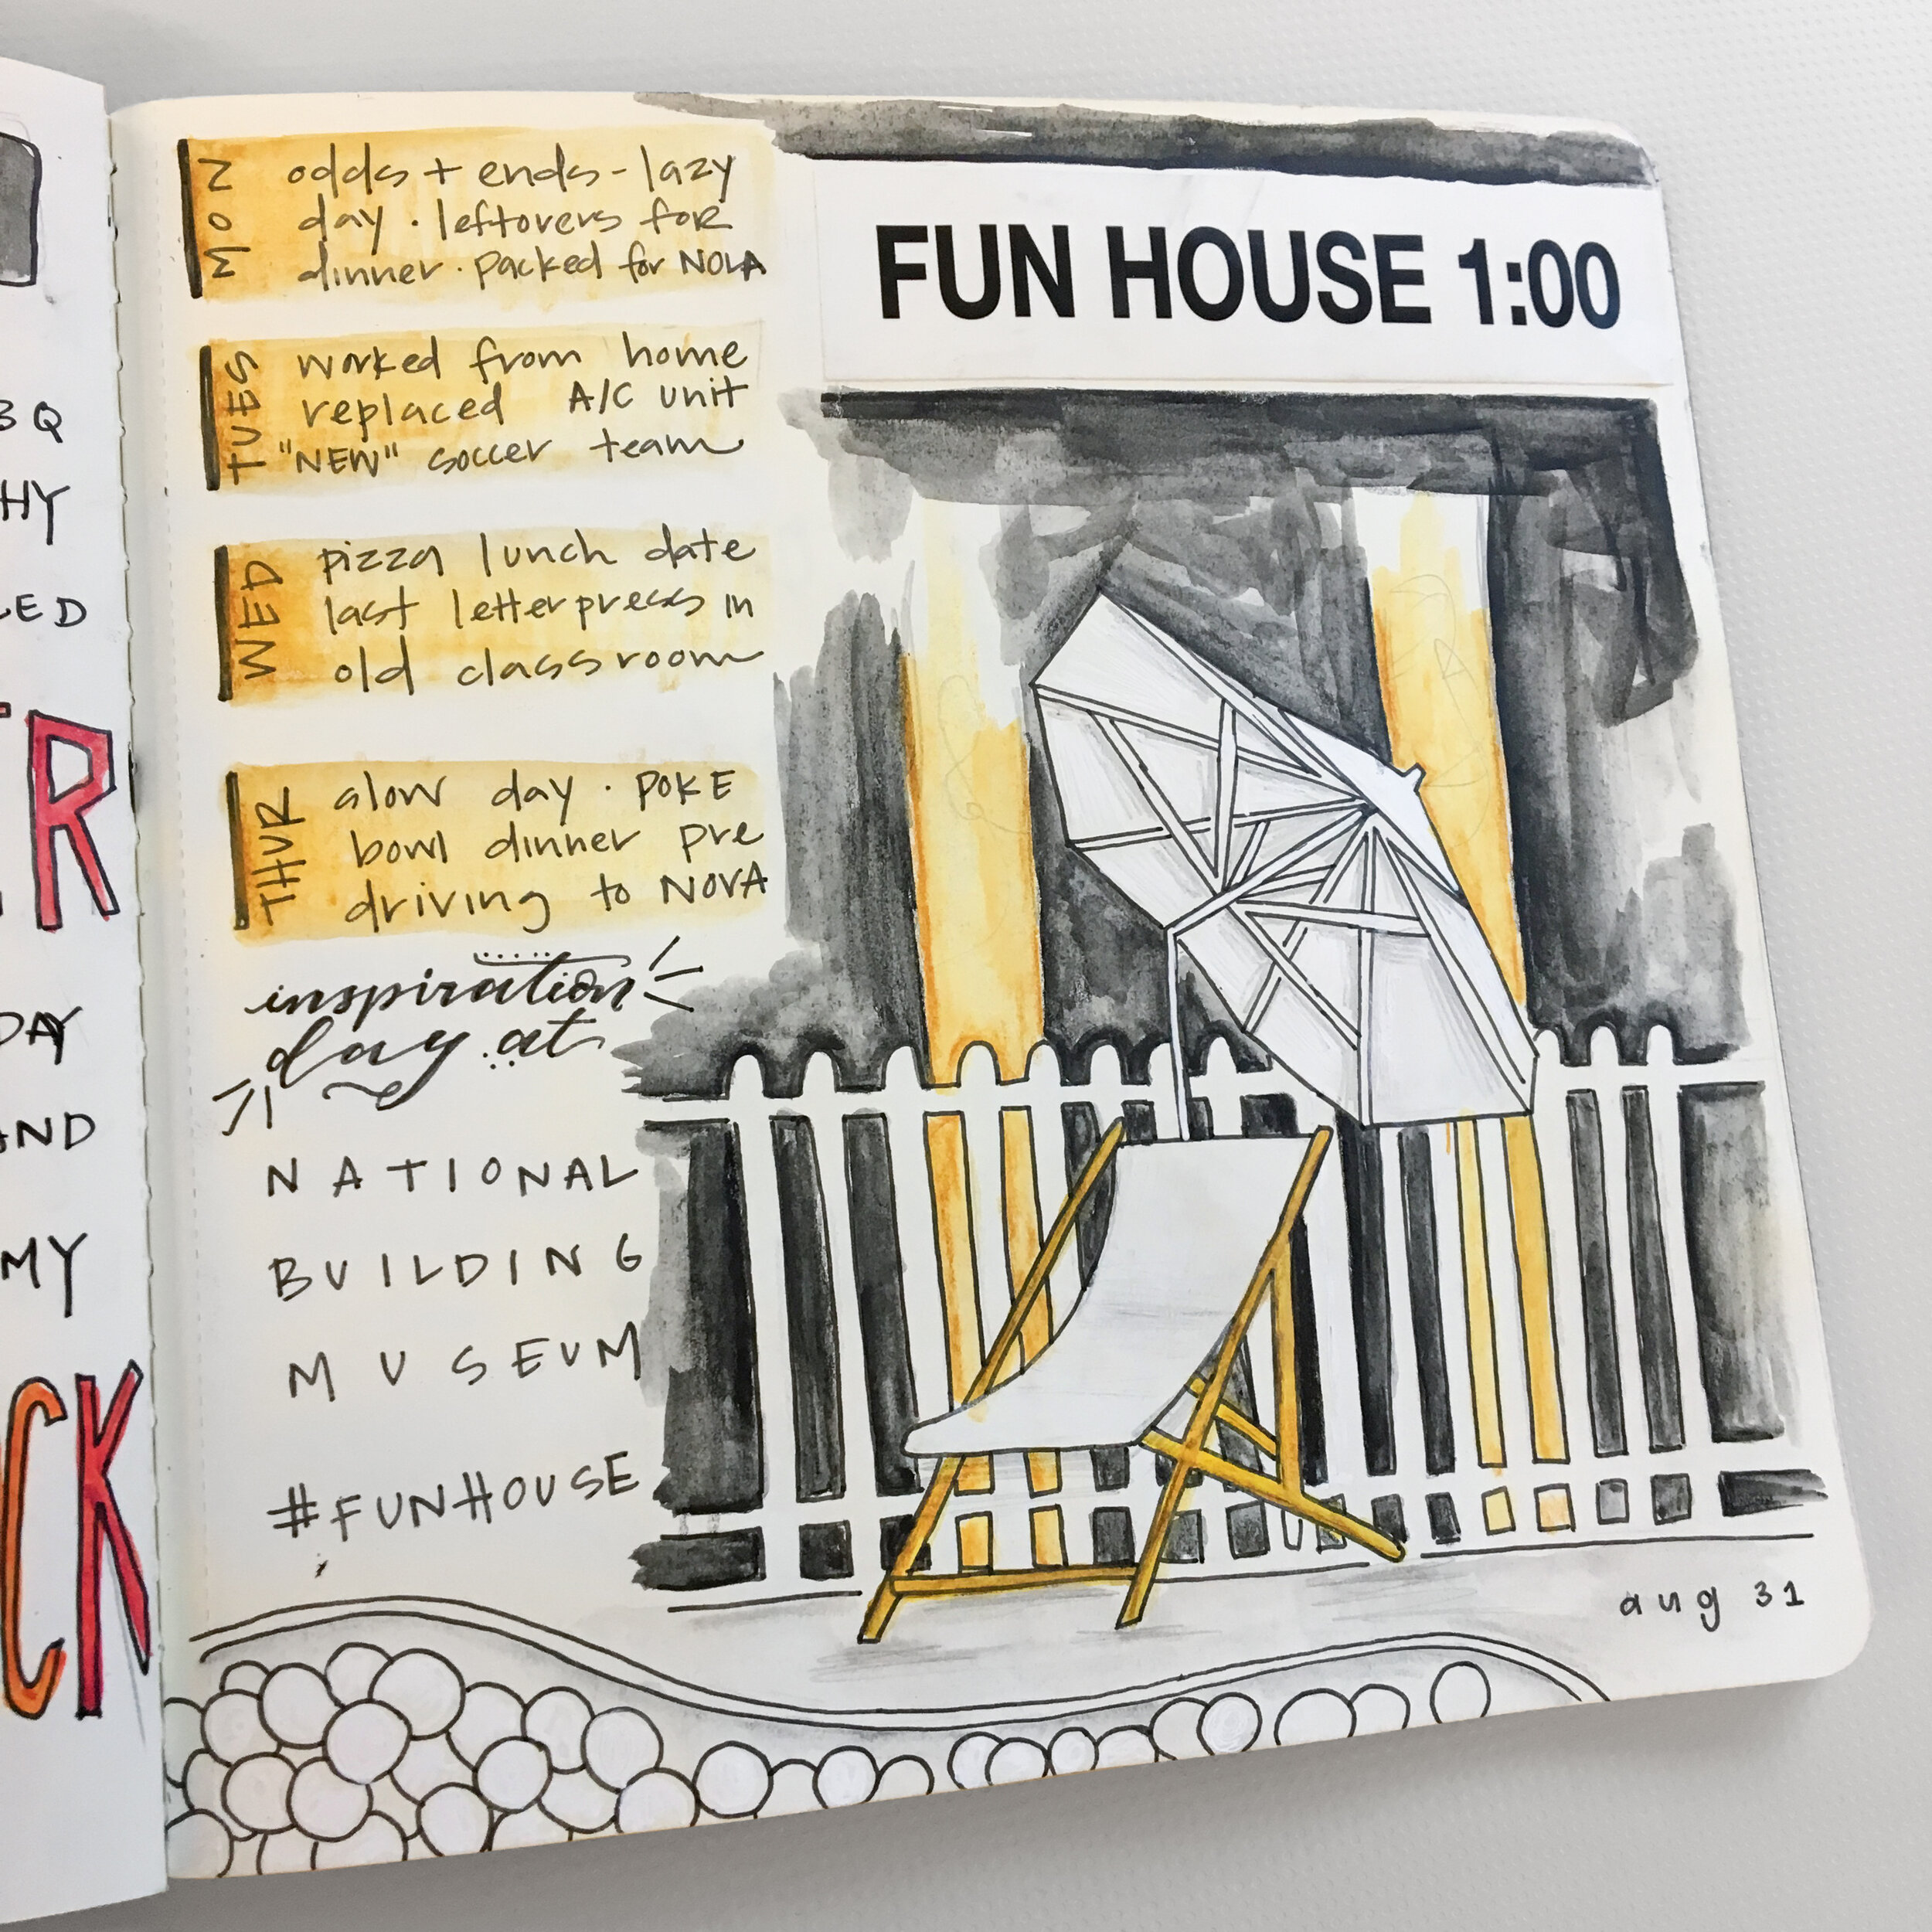 BQ
HY
LED
R
DAY
AND
MY
CK
MON
odds + ends - lazy
day · leftovers for
dinner · packed for NOLA
TUES
worked from home
replaced A/C unit
"NEW" soccer team
WED
pizza lunch date
last letterpress in
old classroom
THUR
slow day · POKE
bowl dinner pre
driving to NOVA
inspiration
day at
NATIONAL
BUILDING
MUSEUM
#FUNHOUSE
FUN HOUSE 1:00
aug 31